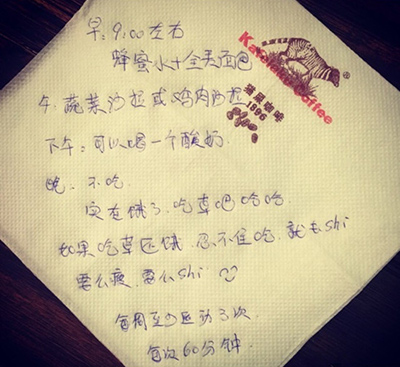 早：9:00左右
蜂蜜水+全麦面包
午：蔬菜沙拉或鸡肉沙拉
下午：可以喝一个酸奶
晚：不吃.
实在饿了，吃草吧哈哈.
如果吃草还饿.忍不住吃.就去shi
要么瘦.要么shi
每周至少运动3次.
每次60分钟.
Coffee
猫屎咖啡
1896